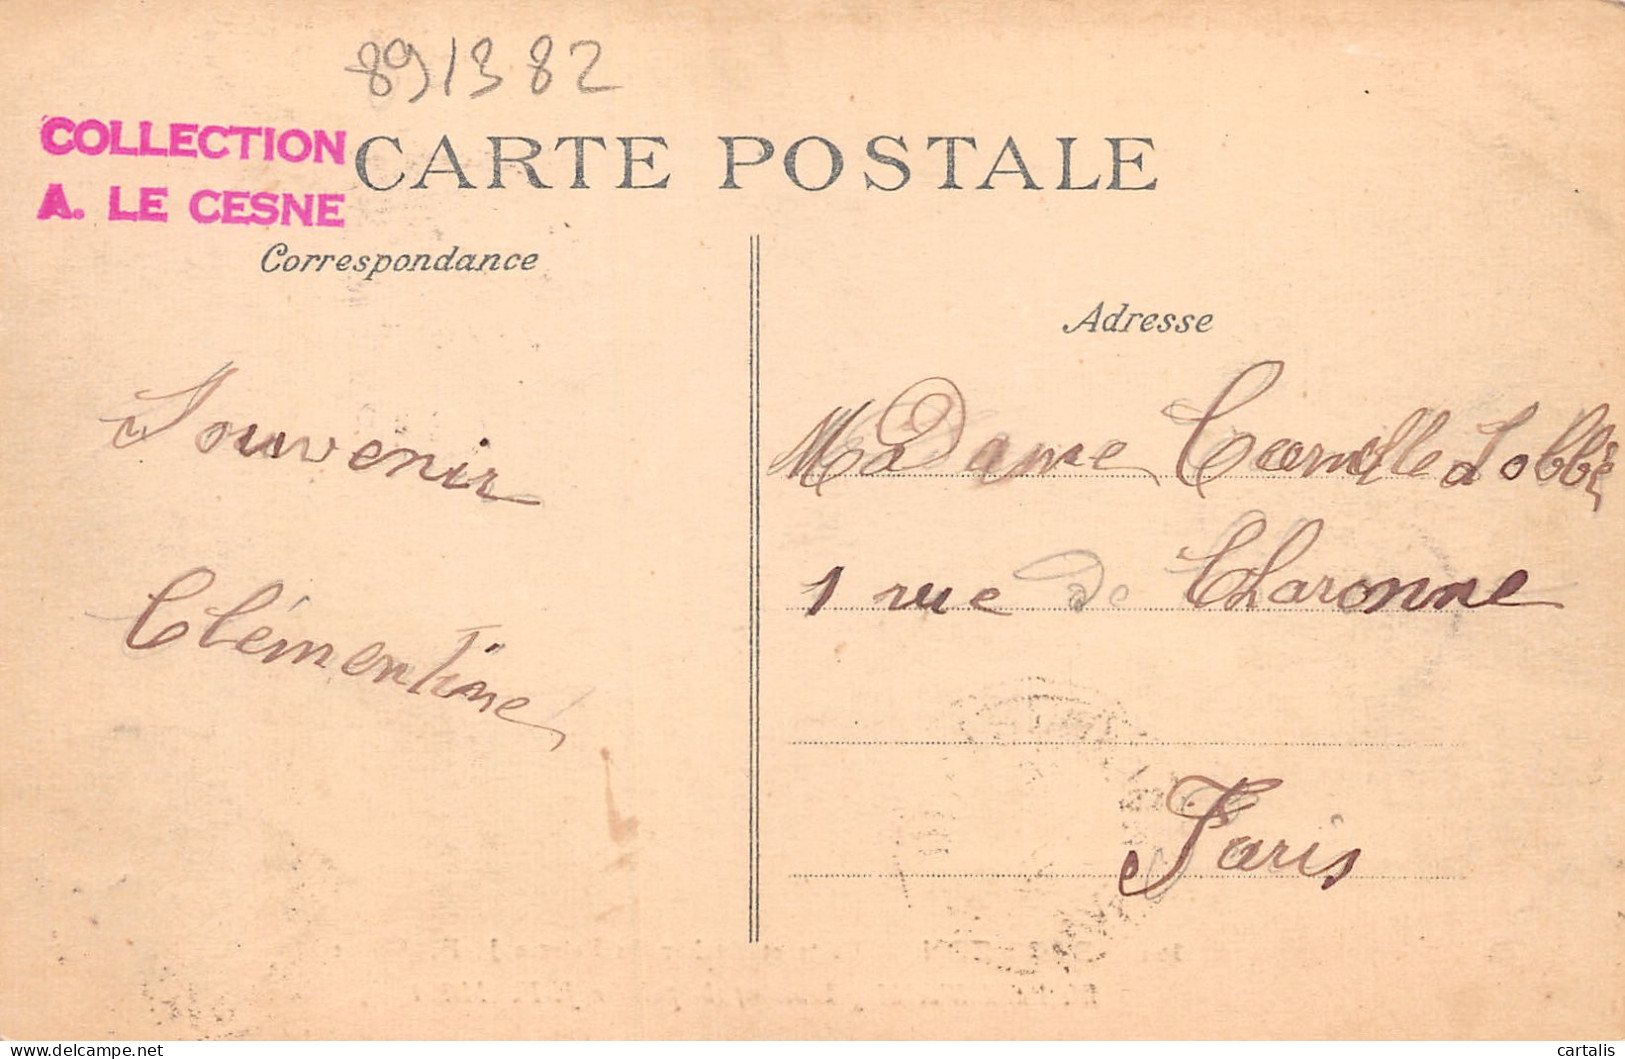 891382
COLLECTION
A. LE CESNE
CARTE POSTALE
Correspondance
Adresse
Souvenir
Clémentine
Madame Camille Lobbé
1 rue de Charonne
Paris
delcampe.net
cartalis